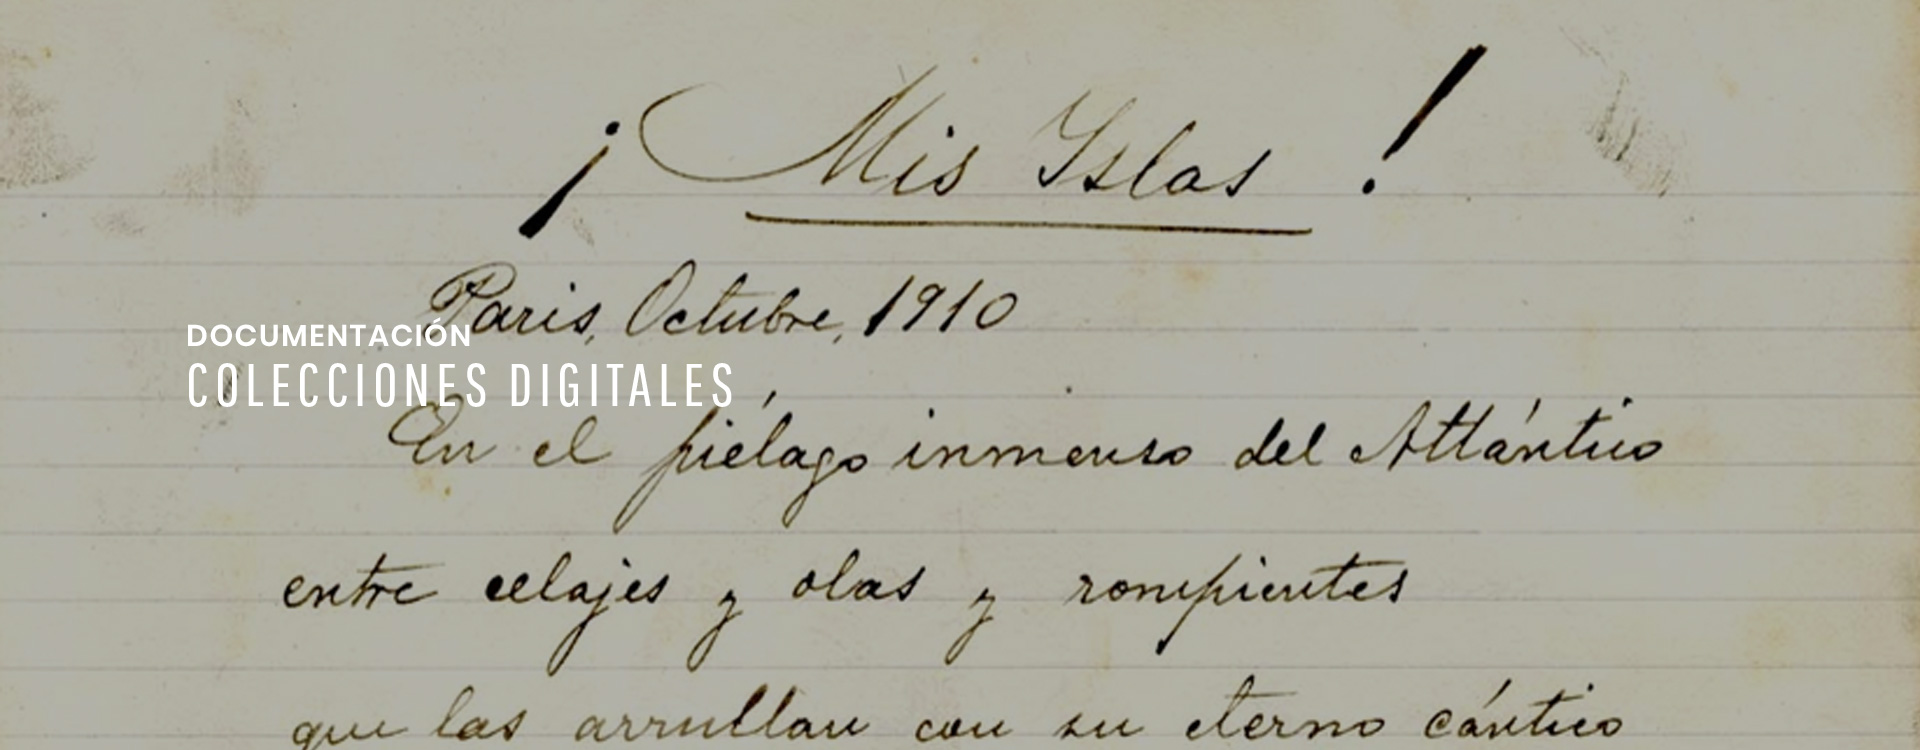 ¡Mis Yslas!
Paris, Octubre, 1910
DOCUMENTACIÓN
COLECCIONES DIGITALES
En el piélago inmenso del Atlántico
entre celajes y olas y rompientes
que las arrullan con su eterno cántico